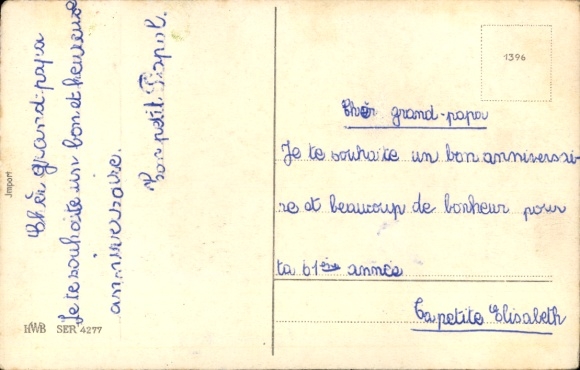 Chèr grand-papa
Je te souhaite un bon et heureux
anniversaire.
Ton petit Papol.
Import
HWB SER 4277
1396
Chèr grand-papa
Je te souhaite un bon anniversai-
re et beaucoup de bonheur pour
ta 61ème année
Ta petite Elisabeth